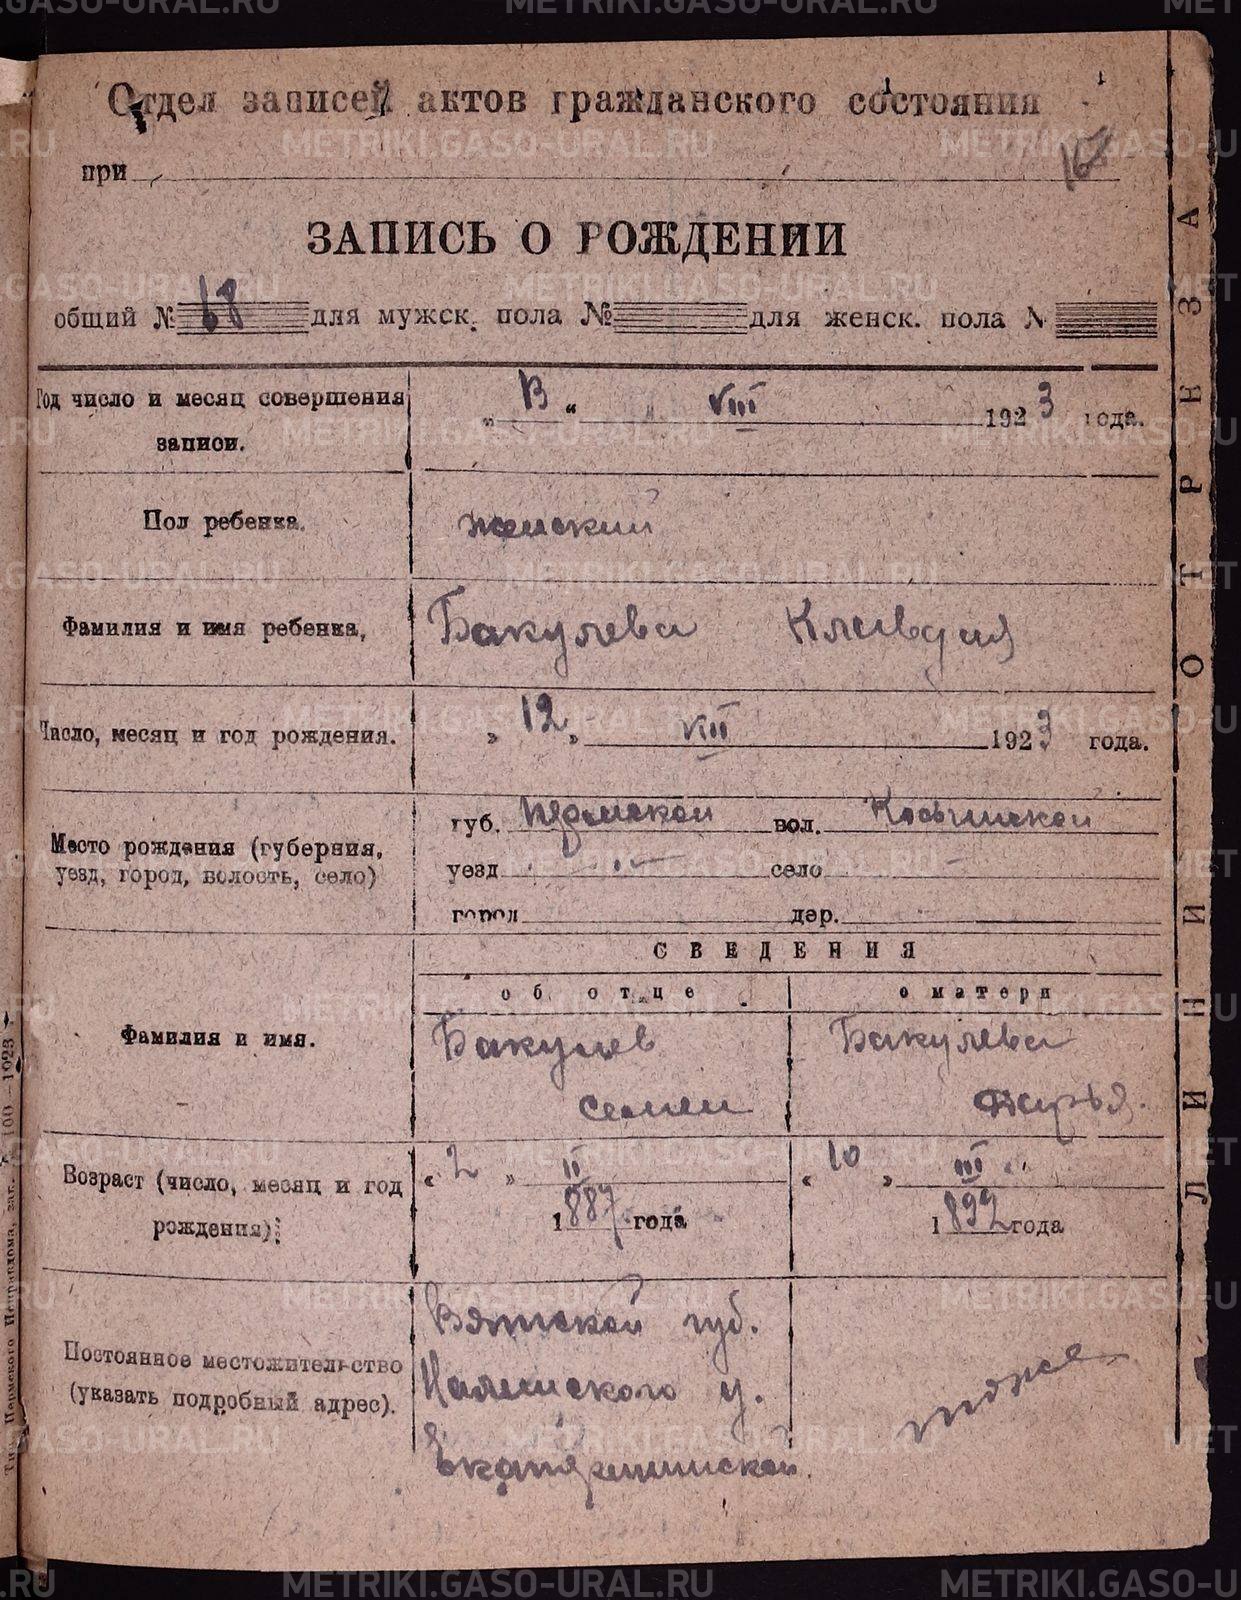 METRIKI.GASO-URAL.RU
Отдел записей актов гражданского состояния
при
167
ЗАПИСЬ О РОЖДЕНИИ
общий № 68 для мужск. пола № для женск. пола №
Год число и месяц совершения записи.
„ 13 “ „ VIII 1923 года.
Пол ребенка.
женский
Фамилия и имя ребенка,
Бакулева Клавдия
Число, месяц и год рождения.
„ 12 „ VIII 1923 года.
Место рождения (губерния, уезд, город, волость, село)
губ. Пермской вол. Косинской
уезд село
город дер.
СВЕДЕНИЯ
об отце о матери
Фамилия и имя.
Бакулев Бакулева
Семен Дарья.
Возраст (число, месяц и год рождения):
„ 2 „ II „ 10 „ III
1887 года 1892 года
Постоянное местожительство (указать подробный адрес).
Вятской губ. тоже
Нолинского у.
Екатерининской.
ЛИНИЯ ОТРЕЗА
Тип. Пермского Исправдома, зак. 100—1923 г.